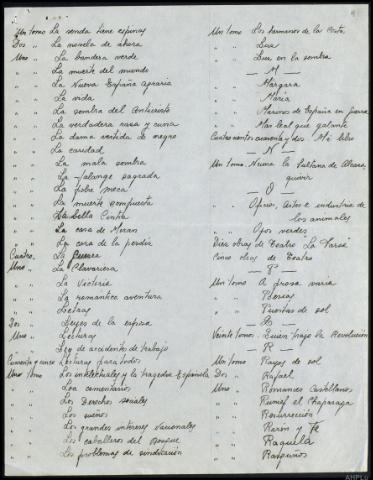 Un tomo La senda tiene espinas
Dos " La novela de ahora
Uno " La bandera verde
" " La muerte del mundo
" " La Nueva España Agraria
" " La vida
" " La sombra del Anticristo
" " La verdadera casa y cuna
" " La dama vestida de negro
" " La caridad
" " La mala sombra
" " La falange sagrada
" " La pobre meca
" " La muerte compuesta
" " La bella Cintia
" " La cora de Miran
" " La cora de la perdiz
Cuatro " La Guerra
Uno " La Clavariera
" " La Victoria
" " La romántica aventura
" " Lectras
Dos " Leyes de la esfinge
Uno " Lecturas
" " Ley de accidentes de trabajo
Cuarenta y cinco Lecturas para todos
Uno tomo Los intelectuales y la tragedia Española
" " Los comentarios
" " Los Derechos sociales
" " Los sueños
" " Los grandes intereses Nacionales
" " Los caballeros del Bosque
" " Los problemas de sindicación
Un tomo Los hermanos de la Costa
" " Luu
" " Luz en la sombra
— M —
" " Margara
" " Maria
" " Marinos de España en guerra
" " Mas leal que galante
Cuatrocientos cincuenta y dos Mi libro
— N —
Un tomo Numa la Sultana de Alcaz
quivir
— O —
" " Oficios, artes e industria de
los animales
" " Ojos verdes
Diez obras de Teatro La Farsa
Cinco obras de Teatro
— P —
Un tomo A prosa varia
" " Poesias
" " Puertas de sol
— Q —
Veinte tomos Quién trajo la Revolución
— R —
Un tomo Rayos de sol
Dos " Rafael
Uno " Romances Castellanos
" " Rumef el Chaparaga
" " Resurrección
" " Razón y Fe
" " Raquela
" " Rasguños
AHPLU